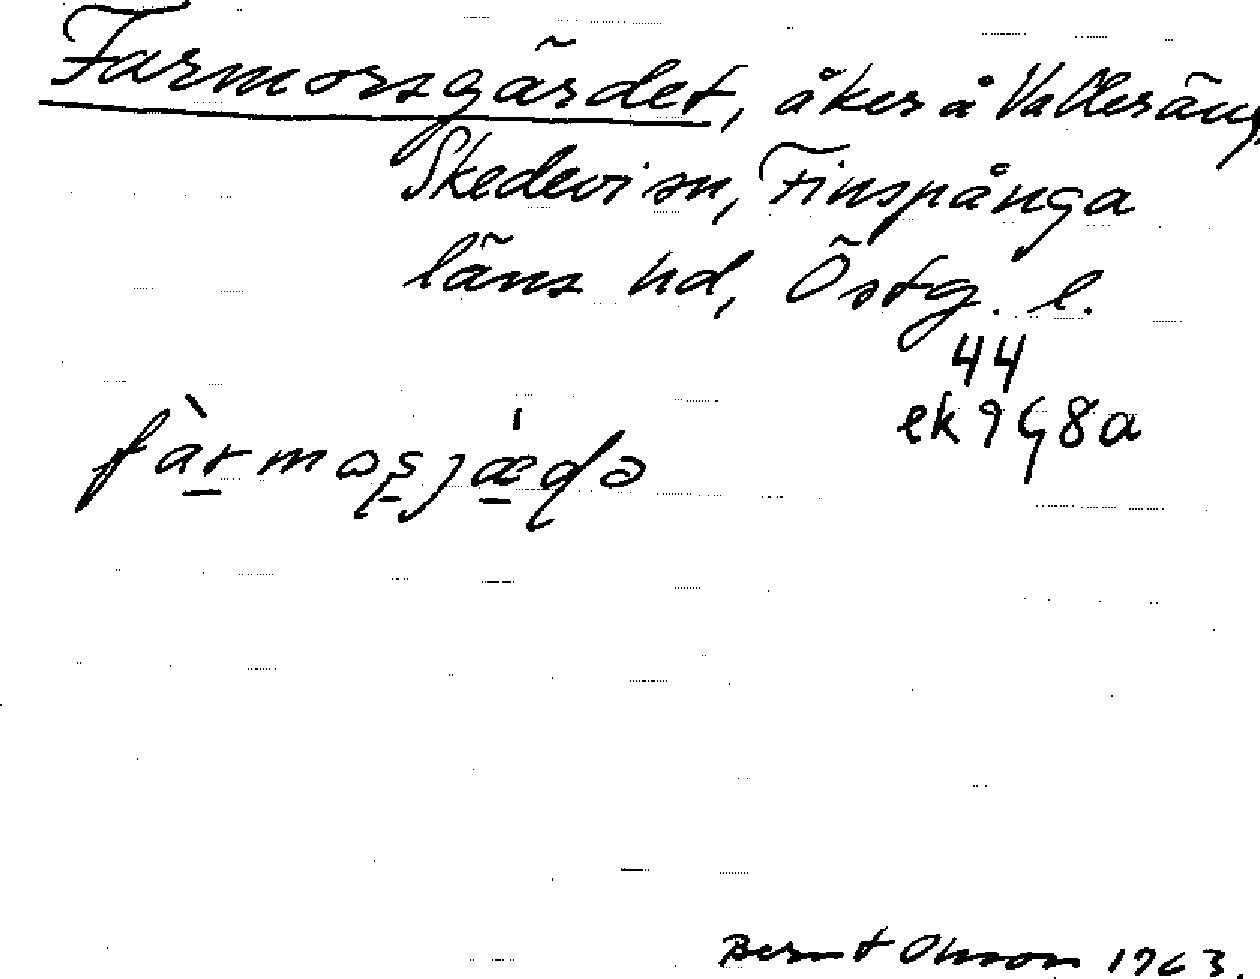 Farmorsgärdet, åker å Valleräng,
Skedevi sn, Finspånga
läns hd, Östg. l.
44
ek 9G8a
fàrmaşjæ̍ɖə
Bernt Olsson 1963.